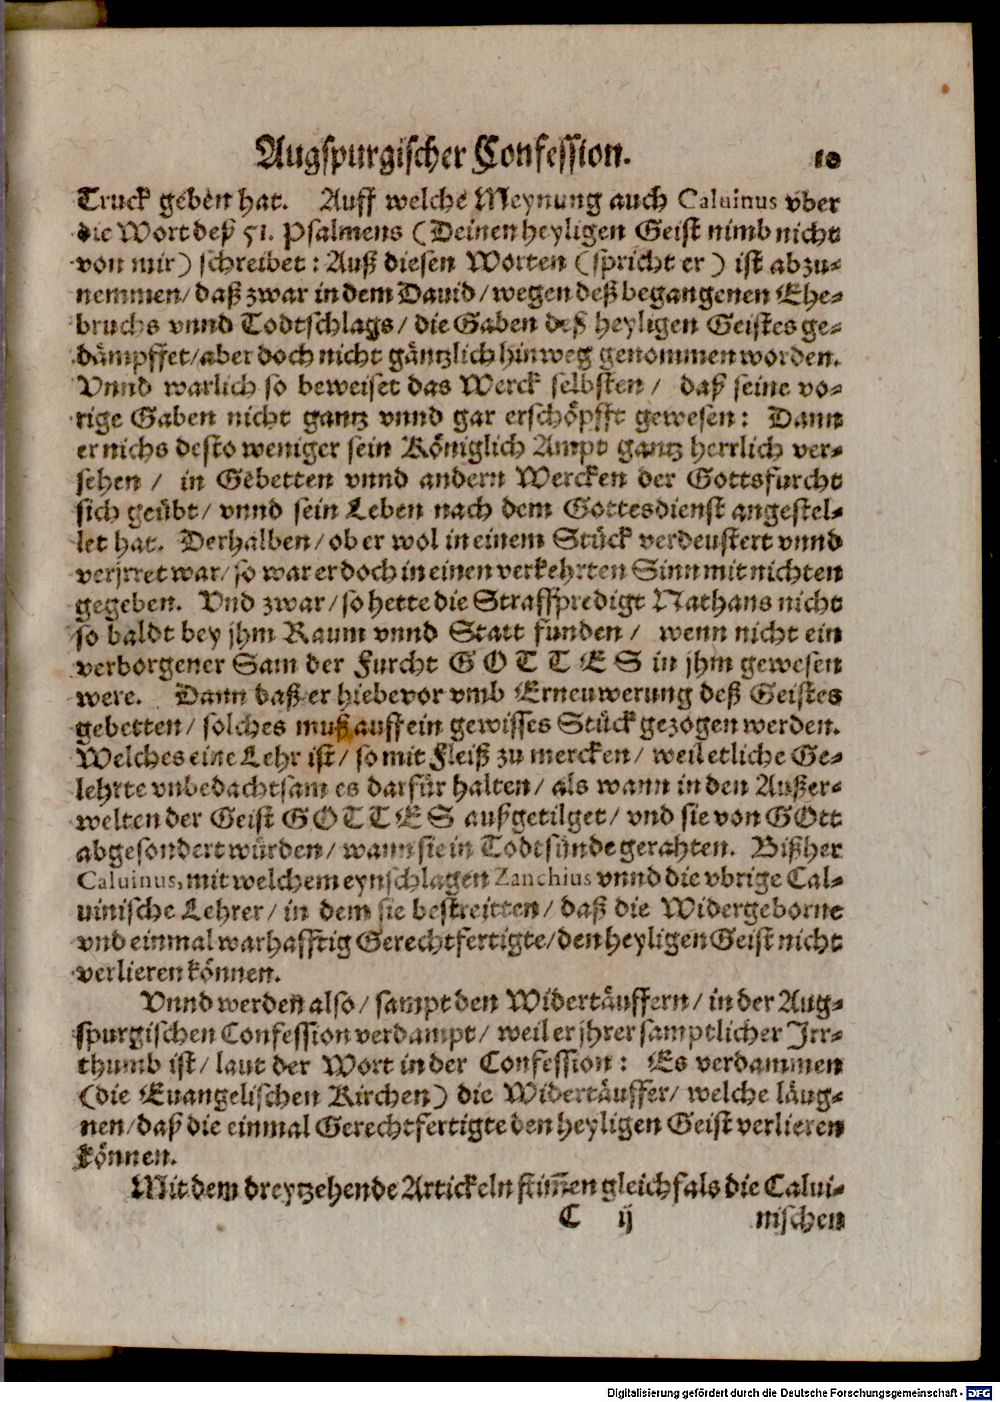 Augspurgischer Confession. 10
Truck geben hat. Auff welche Meynung auch Caluinus vber
die Wort deß 51. Psalmens (Deinen heyligen Geist nimb nicht
von mir) schreibet: Auß diesen Worten (spricht er) ist abzu-
nemmen/ daß zwar in dem Dauid/ wegen deß begangenen Ehe-
bruchs vnnd Todtschlags/ die Gaben deß heyligen Geistes ge-
dämpffet/ aber doch nicht gäntzlich hinweg genommen worden.
Vnnd warlich so beweiset das Werck selbsten/ daß seine vo-
rige Gaben nicht gantz vnnd gar erschöpfft gewesen: Dann
er nichs desto weniger sein Königlich Ampt gantz herrlich ver-
sehen/ in Gebetten vnnd andern Wercken der Gottsfurcht
sich geübt/ vnnd sein Leben nach dem Gottesdienst angestel-
let hat. Derhalben/ ob er wol in einem Stück verdeustert vnnd
verjrret war/ so war er doch in einen verkehrten Sinn mit nichten
gegeben. Vnd zwar/ so hette die Straffpredigt Nathans nicht
so baldt bey jhm Raum vnnd Statt funden/ wenn nicht ein
verborgener Sam der Furcht GOTTES in jhm gewesen
were. Dann daß er hiebevor vmb Erneuwerung deß Geistes
gebetten/ solches muß auff ein gewisses Stück gezogen werden.
Welches eine Lehr ist/ so mit Fleiß zu mercken/ weil etliche Ge-
lehrte vnbedachtsam es darfür halten/ als wann in den Außer-
welten der Geist GOTTES außgetilget/ vnd sie von GOtt
abgesondert würden/ wann sie in Todtsünde gerahten. Bißher
Caluinus, mit welchem eynschlagen Zanchius vnnd die vbrige Cal-
uinische Lehrer/ in dem sie bestreitten/ daß die Widergeborne
vnd einmal warhafftig Gerechtfertigte/ den heyligen Geist nicht
verlieren können.
Vnnd werden also/ sampt den Widertäuffern/ in der Aug-
spurgischen Confession verdampt/ weil er jhrer samptlicher Jrr-
thumb ist/ laut der Wort in der Confession: Es verdammen
(die Euangelischen Kirchen) die Widertäuffer/ welche läug-
nen/ daß die einmal Gerechtfertigte den heyligen Geist verlieren
können.
Mit dem dreytzehende Artickeln stim̃en gleichfals die Calui-
C ij nischen
Digitalisierung gefördert durch die Deutsche Forschungsgemeinschaft - DFG